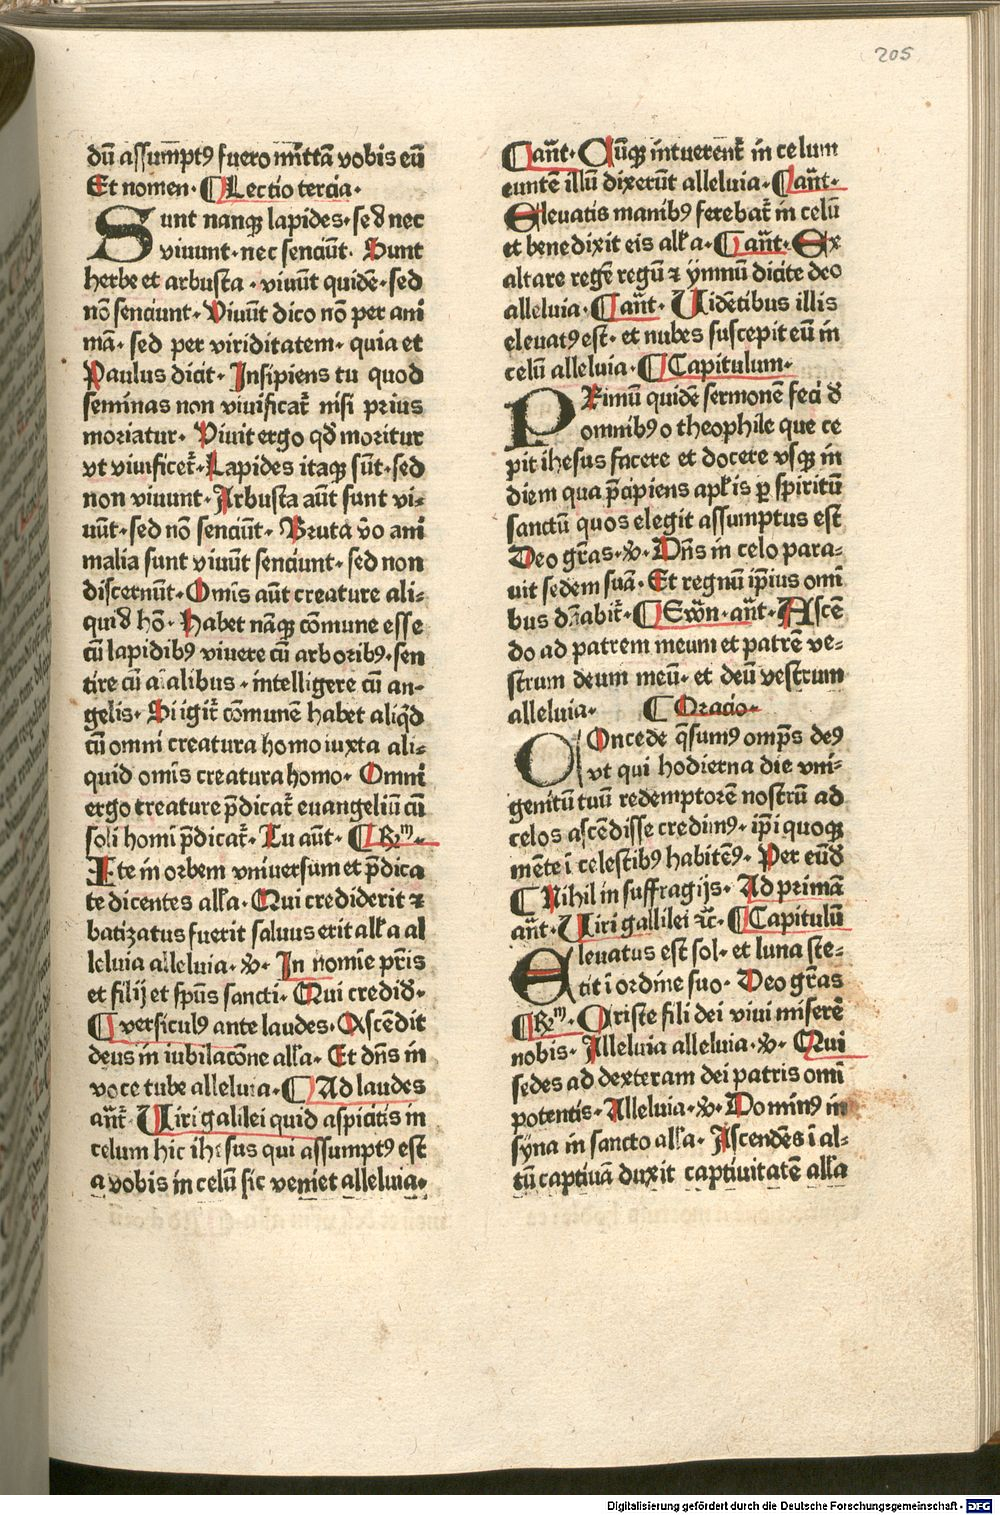 205
dū assumptꝰ fuero mittā vobis eū
Et nomen· ¶ Lectio tercia·
Sunt nanqꝫ lapides· sed nec
viuunt· nec senciūt· Sunt
herbe et arbusta· viuūt quidē· sed
nō senciunt· Viuūt dico nō per ani
mā· sed per viriditatem· quia et
Paulus dicit· Insipiens tu quod
seminas non viuificat᷑ nisi prius
moriatur· Viuit ergo qd̄ moritur
vt viuificet᷑· Lapides itaqꝫ sūt· sed
non viuunt· Arbusta aūt sunt vi⸗
uūt· sed nō senciūt· Bruta v̄o ani
malia sunt viuūt senciunt· sed non
discernūt· Omīs aūt creature ali⸗
quid hō· Habet nāqꝫ cōmune esse
cū lapidibꝰ viuere cū arboribꝰ· sen
tire cū aīalibus· intelligere cū an⸗
gelis· Si igit᷑ cōmunē habet aliqd̄
cū omni creatura homo iuxta ali⸗
quid omīs creatura homo· Omni
ergo creature p̄dicat᷑ euangeliū cū
soli homī p̄dicat᷑· Tu aūt· ¶ Rm̄·
Ite in orbem vniuersum et p̄dica
te dicentes alľa· Qui crediderit ⁊
batizatus fuerit saluus erit alľa al
leluia alleluia· ℣· In nomīe pr̄is
et filij et spūs sancti· Qui credid̄·
¶ versiculꝰ ante laudes· Ascēdit
deus in iubilacōne alľa· Et dn̄s in
voce tube alleluia· ¶ Ad laudes
añt᷑· Uiri galilei quid aspicitis in
celum hic ihesus qui assumptꝰ est
a vobis in celū sic veniet alleluia·
¶ añt· Cūqꝫ intuerent᷑ in celum
euntē illū dixerūt alleluia· ¶ añt·
Eleuatis manibꝰ ferebat᷑ in celū
et benedixit eis alľa· ¶ añt· Ex
altare regē regū ⁊ ymnū dicite deo
alleluia· ¶ añt· Uidētibus illis
eleuatꝰ est· et nubes suscepit eū in
celū alleluia· ¶ Capitulum·
PRimū quidē sermonē feci d̄
omnibꝰ o theophile que ce
pit ihesus facere et docere vsqꝫ in
diem qua p̄cipiens apľis ꝑ spiritū
sanctū quos elegit assumptus est
Deo gr̄as· ℣· Dn̄s in celo para⸗
uit sedem suā· Et regnū ip̄ius omī
bus dn̄abit᷑· ¶ Ew̄n· añt· Ascē
do ad patrem meum et patrē ve⸗
strum deum meū· et deū vestrum
alleluia· ¶ Oracio·
COncede q̄sumꝰ omp̄s deꝰ
vt qui hodierna die vni⸗
genitū tuū redemptorē nostrū ad
celos ascēdisse credimꝰ· ip̄i quoqꝫ
mēte ī celestibꝰ habitēꝰ· Per eūd̄
¶ Nihil in suffragijs· Ad primā
añt· Uiri gallilei ⁊c̄· ¶ Capitulū
Eleuatus est sol· et luna ste⸗
tit ī ordine suo· Deo gr̄as
¶ Rm̄· Criste fili dei viui miserē
nobis· Alleluia alleluia· ℣· Qui
sedes ad dexteram dei patris omī
potentis· Alleluia· ℣· Dominꝰ in
syna in sancto alľa· Ascendēs ī al⸗
tū captiuā duxit captiuitatē alľa
Digitalisierung gefördert durch die Deutsche Forschungsgemeinschaft - DFG